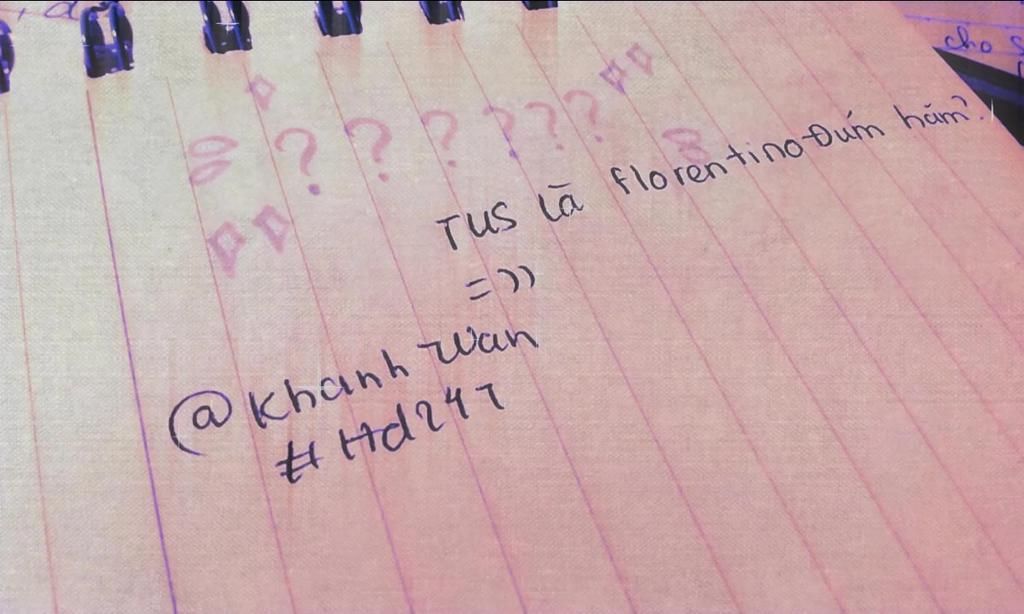 ? ? ? ? ? ?
TUS là florentino Đúm hăm?
=))
@Khanh Wan
#Hd247
cho